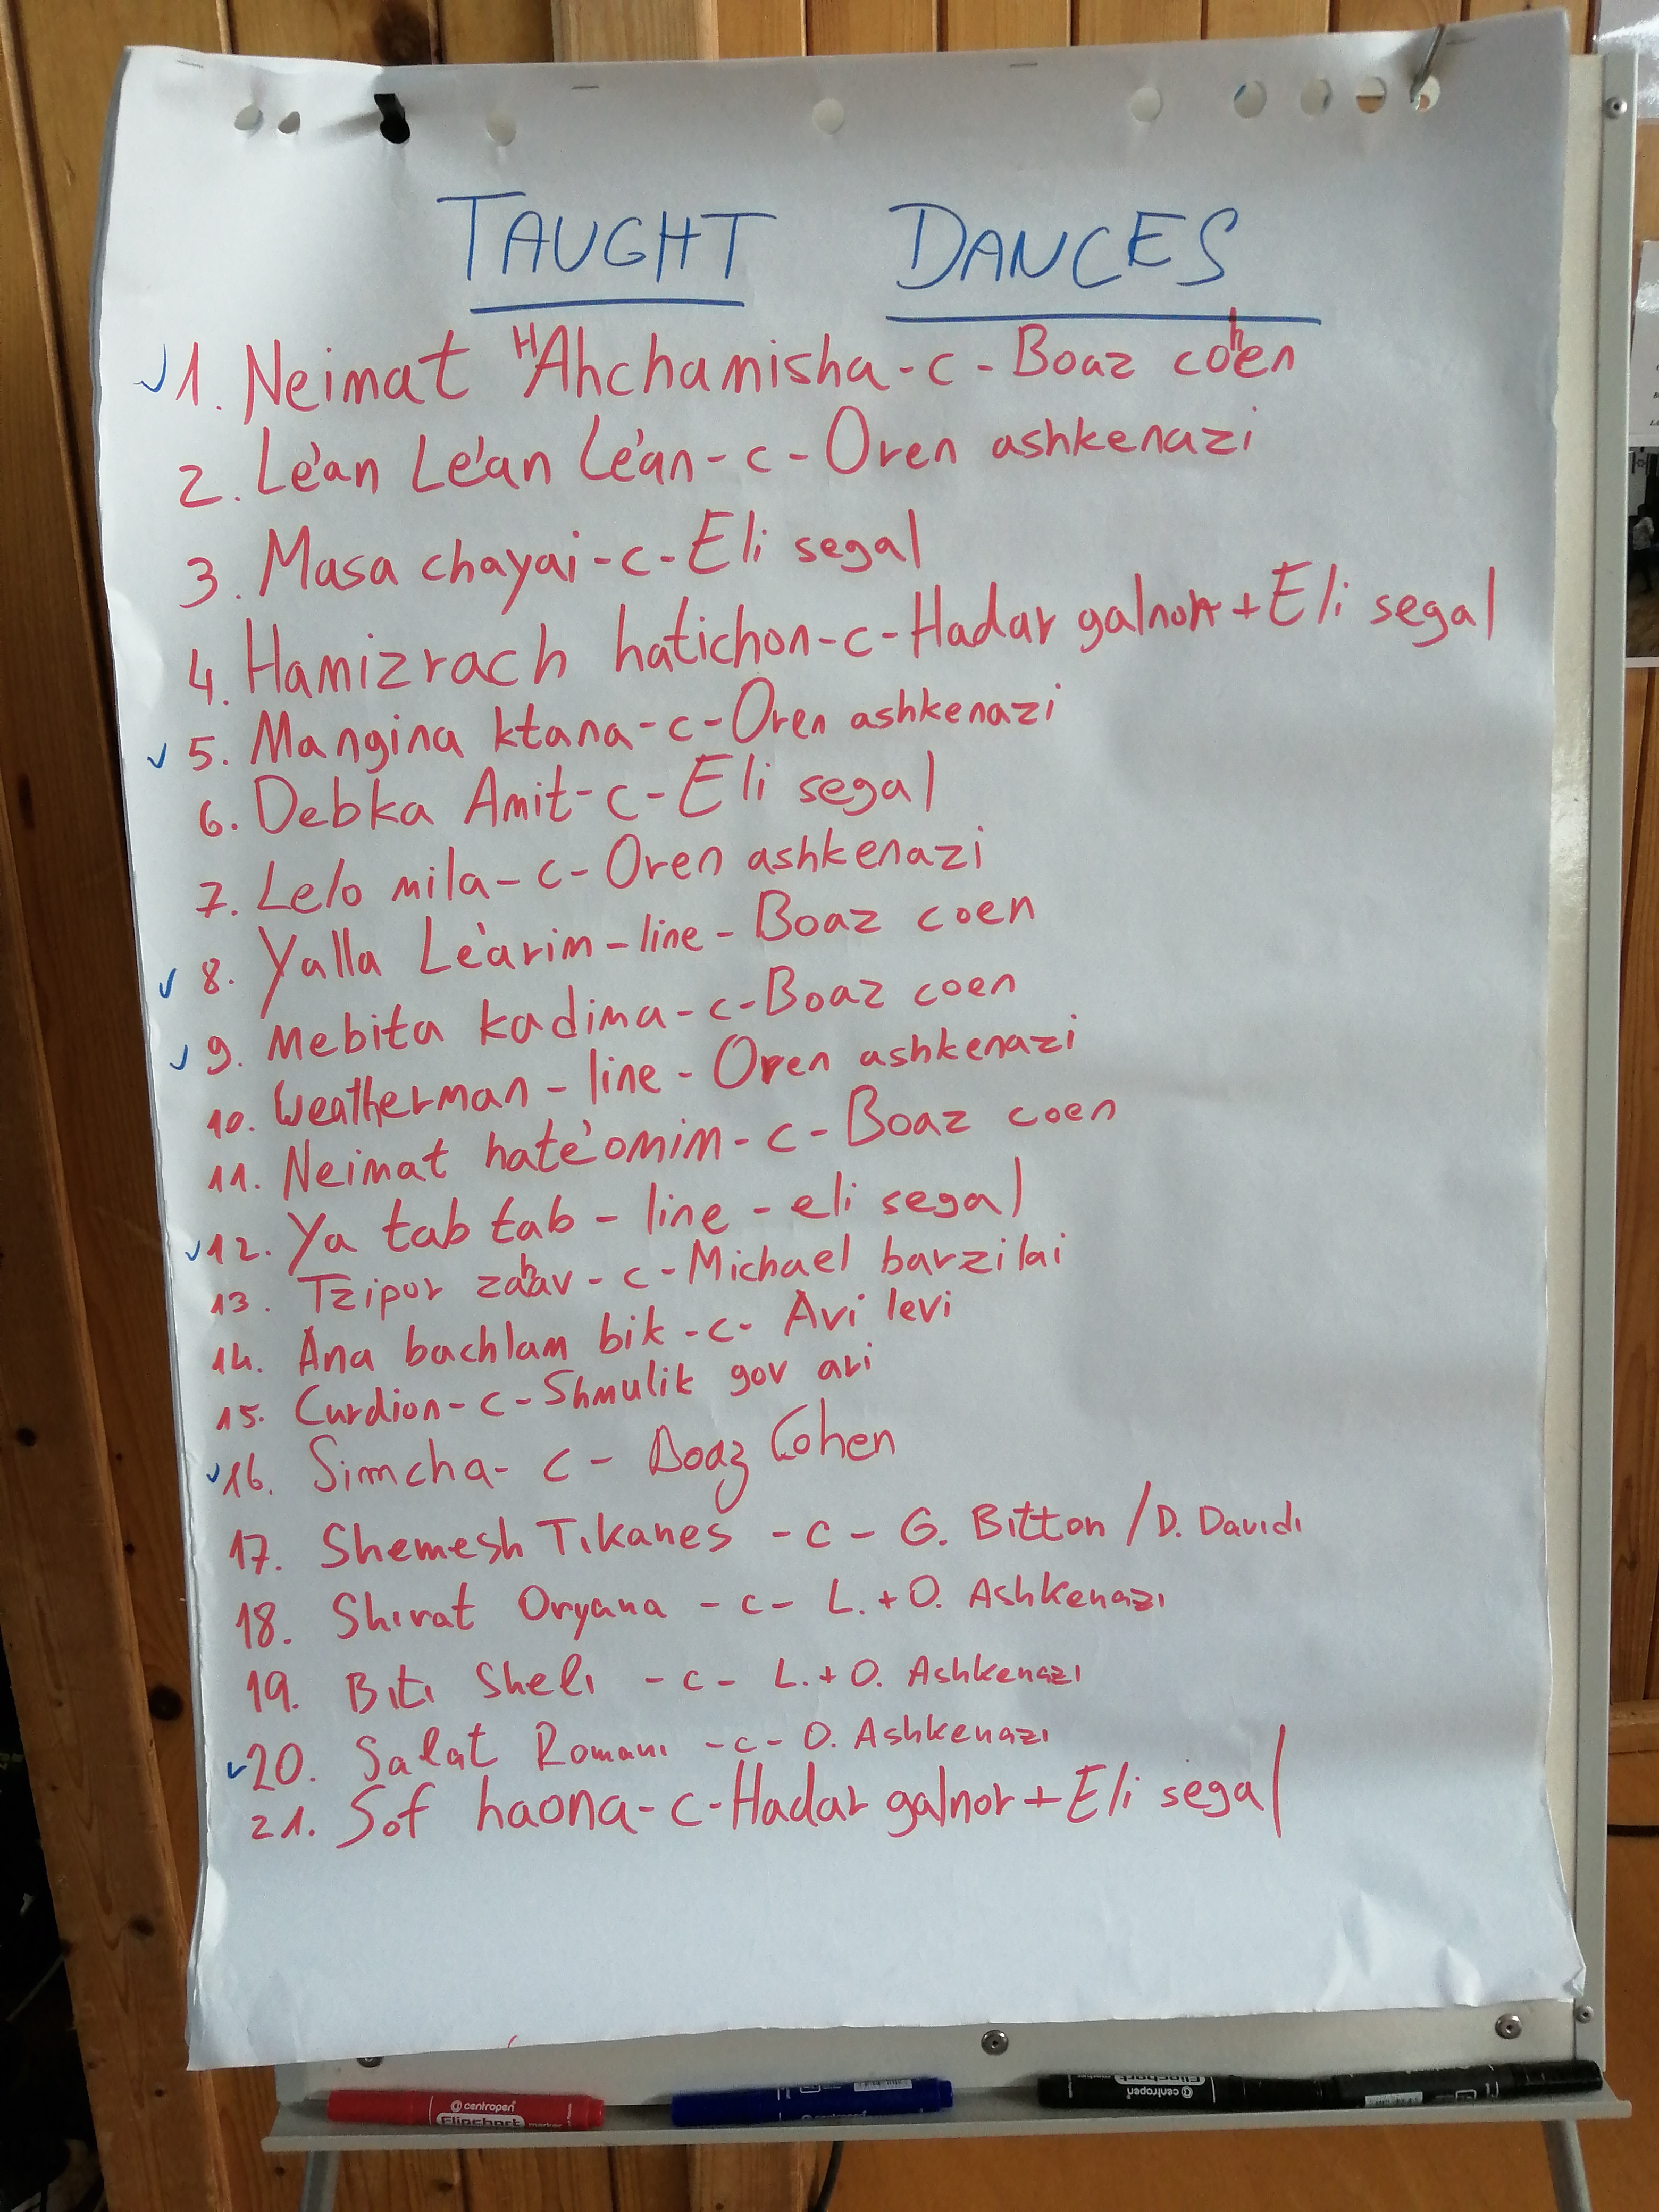 TAUGHT DANCES
✓ 1. Neimat HAhchamisha - c - Boaz cohen
2. Le'an Le'an Le'an - c - Oren ashkenazi
3. Masa chayai - c - Eli segal
4. Hamizrach hatichon - c - Hadar galnor + Eli segal
✓ 5. Mangina ktana - c - Oren ashkenazi
6. Debka Amit - c - Eli segal
7. Lelo mila - c - Oren ashkenazi
✓ 8. Yalla Le'arim - line - Boaz coen
✓ 9. Mebita kadima - c - Boaz coen
10. Weatherman - line - Oren ashkenazi
11. Neimat hate'omim - c - Boaz coen
✓ 12. Ya tab tab - line - eli segal
13. Tzipor zahav - c - Michael barzilai
14. Ana bachlam bik - c - Avi levi
15. Curdion - c - Shmulik gov ari
✓ 16. Simcha - c - Boaz Cohen
17. Shemesh Tikanes - c - G. Bitton / D. Davidi
18. Shirat Oryana - c - L. + O. Ashkenazi
19. Biti Sheli - c - L. + O. Ashkenazi
✓ 20. Salat Romani - c - O. Ashkenazi
21. Sof haona - c - Hadar galnor + Eli segal
centropen
Flipchart marker
centropen
centropen
Flipchart